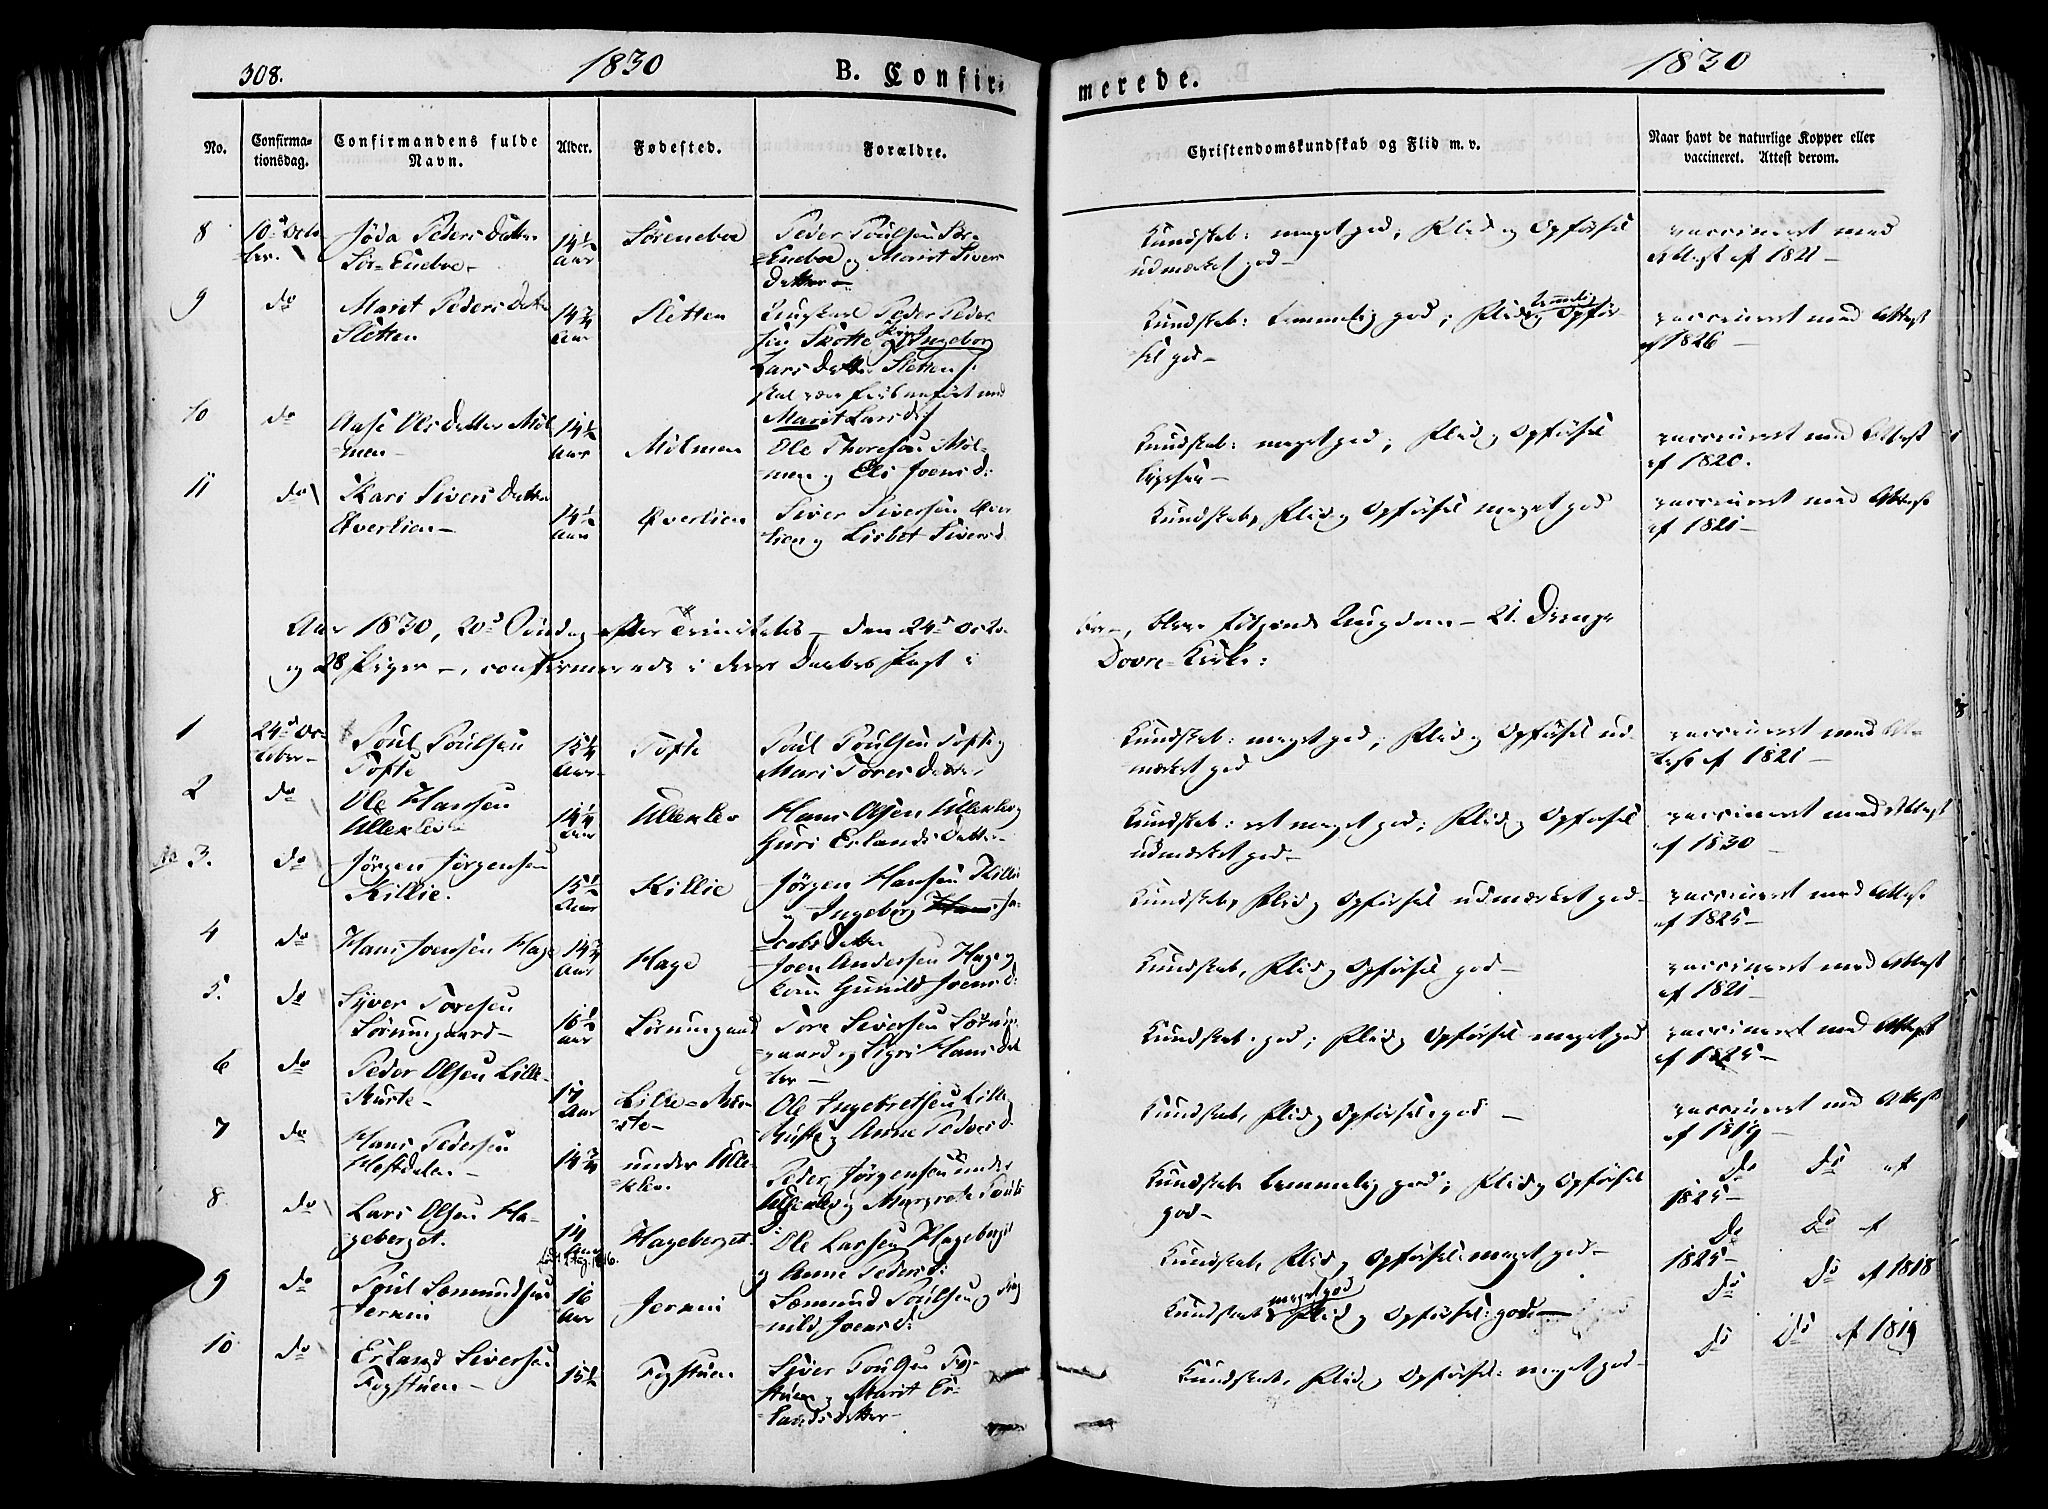 308.
1830
B. Confir
merede.
1830
No.
Confirma-
tionsdag.
Confirmandens fulde
Navn.
Alder.
Fødested.
Forældre.
Christendomskundskab og Flid m. v.
Naar havt de naturlige Kopper eller
vaccineret. Attest derom.
8
10d Octo-
ber.
Joda Peders Datter
Sør-Eneboe-
14½
Aar
Söreneboe
Peder Poulsen Sör-
Eneboe og Marit Sivers
datter-
Kundskab: meget god; Flid og Opførsel
udmærket god-
vaccineret med
Attest af 1821-
9
do
Maret Peders Datter
Sletten
14¾
Aar
Sletten
Ungkarl Peder Peder-
sen Skotte og Pige Ingeborg
Lars Datter Sletten
skal være
Marit Larsd.
Kundskab: temmelig god; Flid temmelig og Opfør-
sel god-
vaccineret med Attest
af 1826-
10
do
Aase Ols Datter Möl-
men-
14½
Aar
Mölmen
Ole Thoresen Möl-
men og Eli Joensd:
Kundskab: meget god; Flid og Opførsel
ligesaa-
vaccineret med Attest
af 1820.
11
do
Kari Sivers Datter
Øverlien-
14½
Aar
Øverlien
Siver Siversen Øver-
lien og Lisbet Siversd.
Kundskab, Flid og Opførsel meget god
vaccineret med Attest
af 1821-
Aar 1830, 20d Søndag efter Trinitatis - den 24d Octo-
ber-, bleve følgende Ungdom - 21. Drenge
og 28 Piger -, confirmerede i deres Daabes Pagt i
Dovre-Kirke:
1
24d Oc-
tober-
Poul Poulsen
Tofte
15¼
Aar-
Tofte
Poul Poulsen Tofte og
Mari Tores Datter
Kundskab: meget god; Flid og Opførsel ud-
mærket god
vaccineret med At-
test af 1821-
2
do
Ole Hansen
Ullekleiv
14¼
Aar
Ullekler
Hans Olsen Ullekler og
Guri Erlands Datter-
Kundskab: ret meget god; Flid og Opførsel
udmærket god-
vaccineret med Attest
af 1830-
3.
do
Jörgen Jörgensen
Killie.
15½
Aar
Killie
Jörgen Hansen Killie
og Ingeborg Hans Ja-
cobsdatter
Kundskab, Flid og Opførsel udmærket god-
vaccineret med Attest
af 1825-
4
do
Hans Joensen Hage
14¾
Aar
Hage
Joen Andersen Hage og
Kone Gunild Joensd:
Kundskab, Flid og Opførsel god-
vaccineret med Attest
af 1821-
5.
do
Syver Toresen
Sörumgaard-
16½
Aar
Sörumgaard
Tore Siversen Sörum-
gaard og Sigri Hans Dat-
ter-
Kundskab: god; Flid og Opførsel meget god
vaccineret med Attest
af 1825-
6
do
Peder Olsen Lille-
Ruste-
17
Aar
Lille-Ru-
ste-
Ole Ingebretsen Lille-
Ruste og Anne Pedersd.
Kundskab, Flid og Opførsel: god-
vaccineret med Attest
af 1819-
7
do
Hans Pedersen
Hestdalen-
under Ulle-
kler.
Peder Jörgensen under
Ullekler og Margrete Pouls
d:
Kundskab temmelig god; Flid og Opførsel
god-
Do Do af
1825-
8
do
Lars Olsen Ha-
geberget.
14
Aar
Hageberget-
Ole Larsen Hageberget
og Anne Pedersd:
Kundskab, Flid og Opførsel: meget god-
Do Do af
1825-
9
do
Poul Sæmundsen
Jerkin
16
Aar
Jerkin
Sæmund Poulsen og Rag-
nild Joensd:
Kundskab meget god Flid og Opførsel: god-
Do Do af 1818
10
do
Erland Siversen
Fogstuen-
15½
Fogstuen
Siver Poulsen Fog-
stuen og Marit Er-
lands datter-
Kundskab, Flid og Opførsel: meget god-
Do Do af 1819